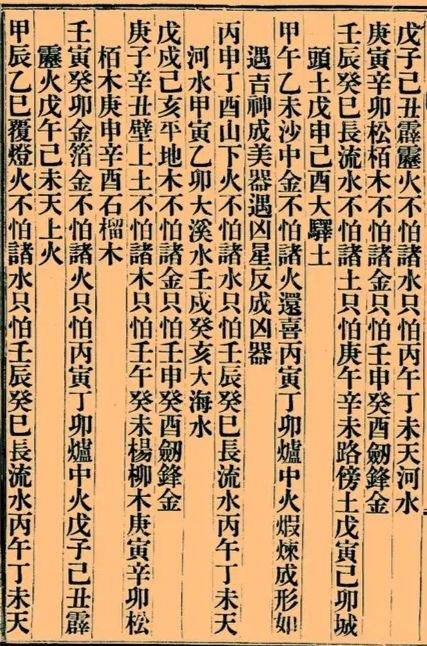 戊子己丑霹靂火不怕諸水只怕丙午丁未天河水
庚寅辛卯松栢木不怕諸金只怕壬申癸酉劒鋒金
壬辰癸巳長流水不怕諸土只怕庚午辛未路傍土戊寅己卯城
頭土戊申己酉大驛土
甲午乙未沙中金不怕諸火還喜丙寅丁卯爐中火煆煉成形如
遇吉神成美器遇凶星反成凶器
丙申丁酉山下火不怕諸水只怕壬辰癸巳長流水丙午丁未天
河水甲寅乙卯大溪水壬戌癸亥大海水
戊戌己亥平地木不怕諸金只怕壬申癸酉劒鋒金
庚子辛丑壁上土不怕諸木只怕壬午癸未楊柳木庚寅辛卯松
栢木庚申辛酉石榴木
壬寅癸卯金箔金不怕諸火只怕丙寅丁卯爐中火戊子己丑霹
靂火戊午己未天上火
甲辰乙巳覆燈火不怕諸水只怕壬辰癸巳長流水丙午丁未天